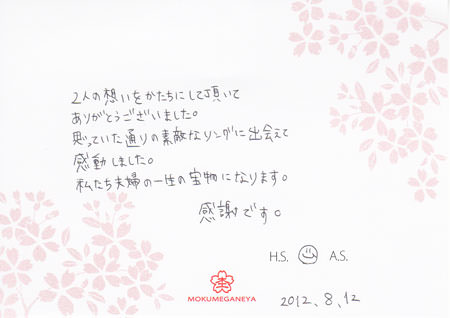 2人の想いをかたちにして頂いて
ありがとうございました。
思っていた通りの素敵なリングに出会えて
感動しました。
私たち夫婦の一生の宝物になります。
感謝です。
H.S. A.S.
MOKUMEGANEYA
2012、8、12